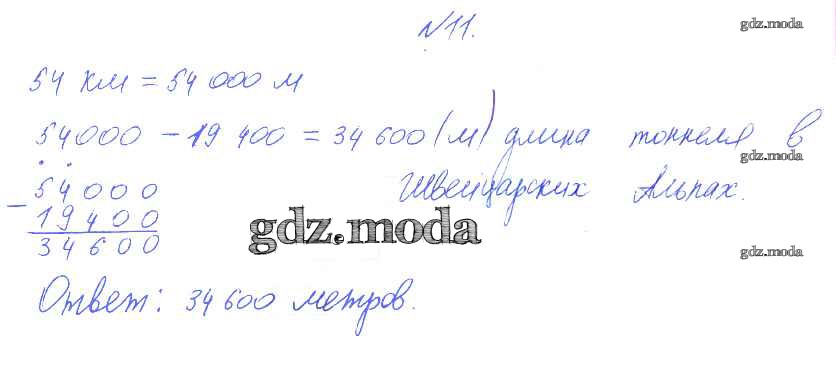 №11.
gdz.moda
54 км = 54 000 м
54000 - 19 400 = 34 600 (м) длина тоннеля в
gdz.moda
- 54000
Швейцарских Альпах.
19400
gdz.moda
34600
gdz.moda
Ответ: 34 600 метров.